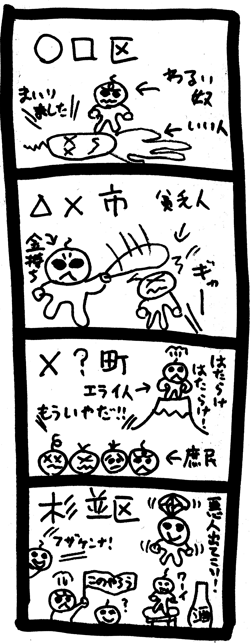 ○口区
わるい奴
まいりました
いい人
△×市
貧乏人
金持ち
ギャー
×?町
はたらけ
はたらけ!
エライ人
もういやだ!!
庶民
杉並区
悪人出てこい!
フザケンナ!
このやろう
?
ワーイ
酒